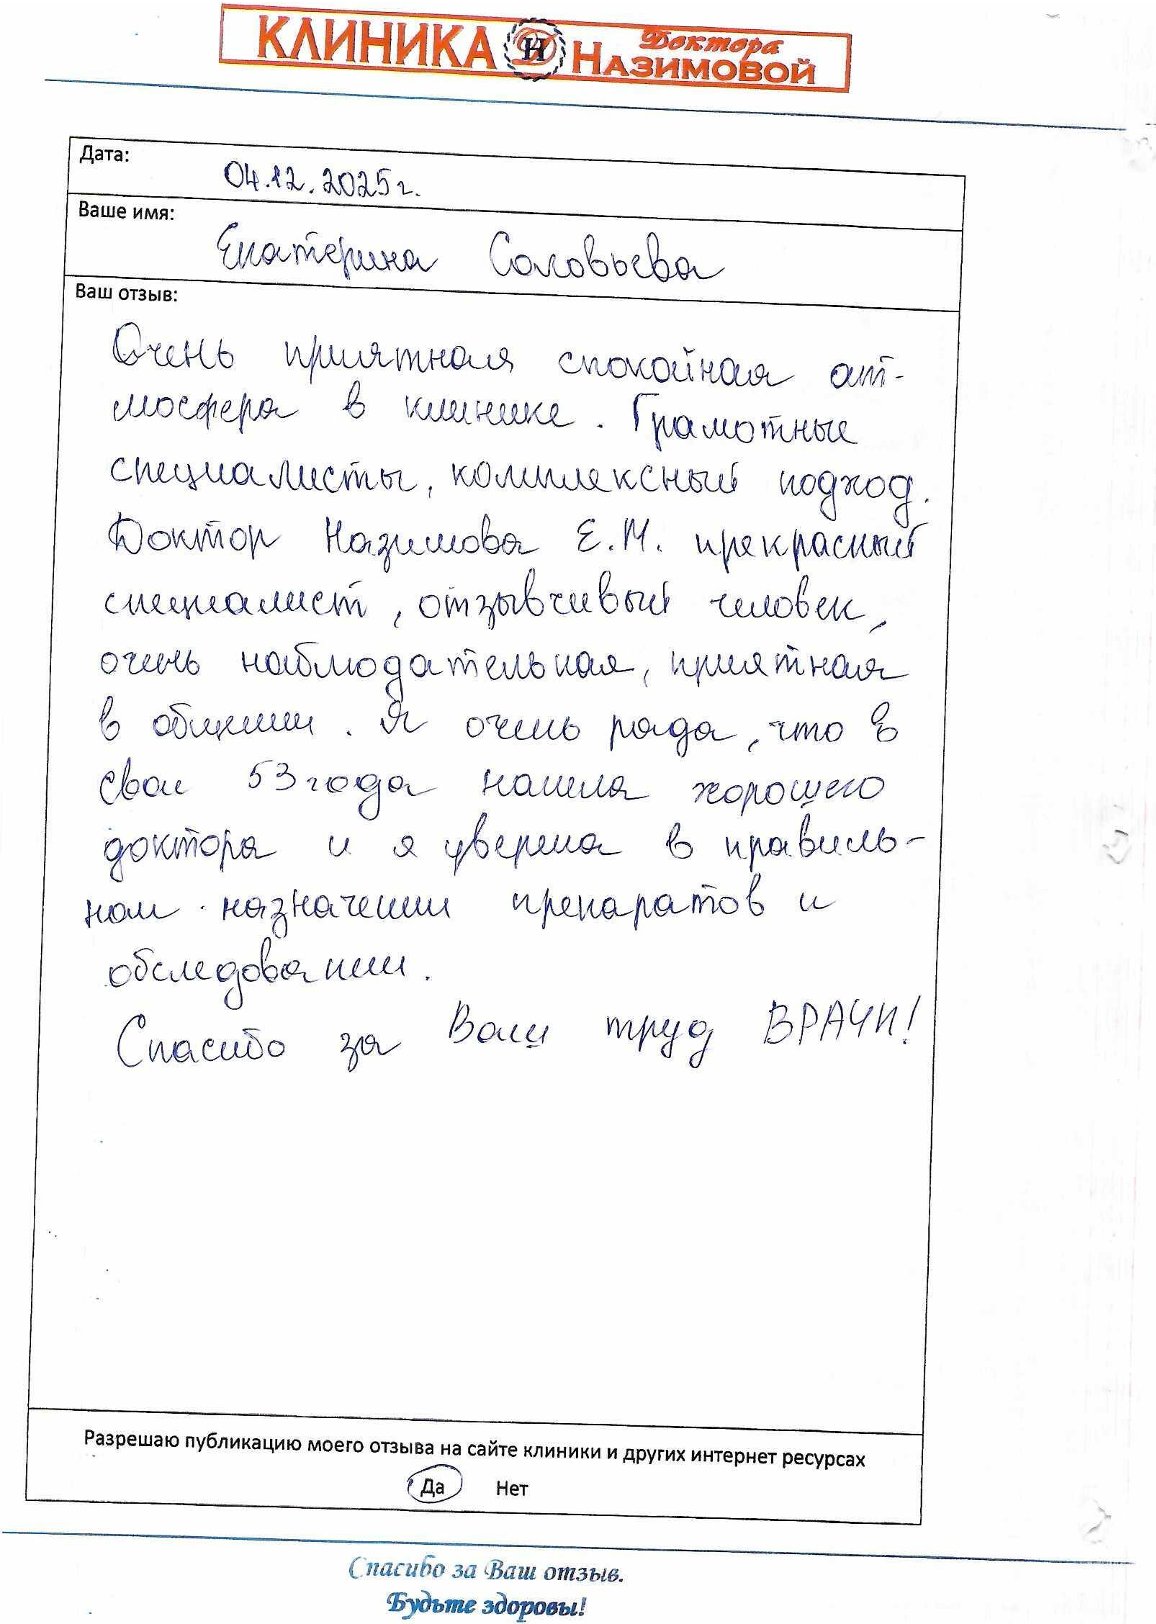 КЛИНИКА ДН Доктора Назимовой
Дата: 04.12.2025г.
Ваше имя: Екатерина Соловьева
Ваш отзыв:
Очень приятная спокойная ат-
мосфера в клинике. Грамотные
специалисты, комплексный подход.
Доктор Назимова Е.М. прекрасный
специалист, отзывчивый человек,
очень наблюдательная, приятная
в общении. Я очень рада, что в
свои 53 года нашла хорошего
доктора и я уверена в правиль-
ном назначении препаратов и
обследовании.
Спасибо за Ваш труд ВРАЧИ!
Разрешаю публикацию моего отзыва на сайте клиники и других интернет ресурсах
Да Нет
Спасибо за Ваш отзыв.
Будьте здоровы!